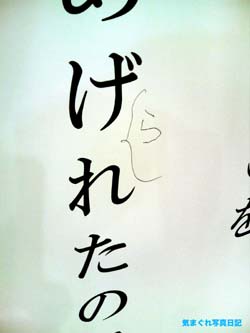 あげれたの
ら
を
気まぐれ写真日記